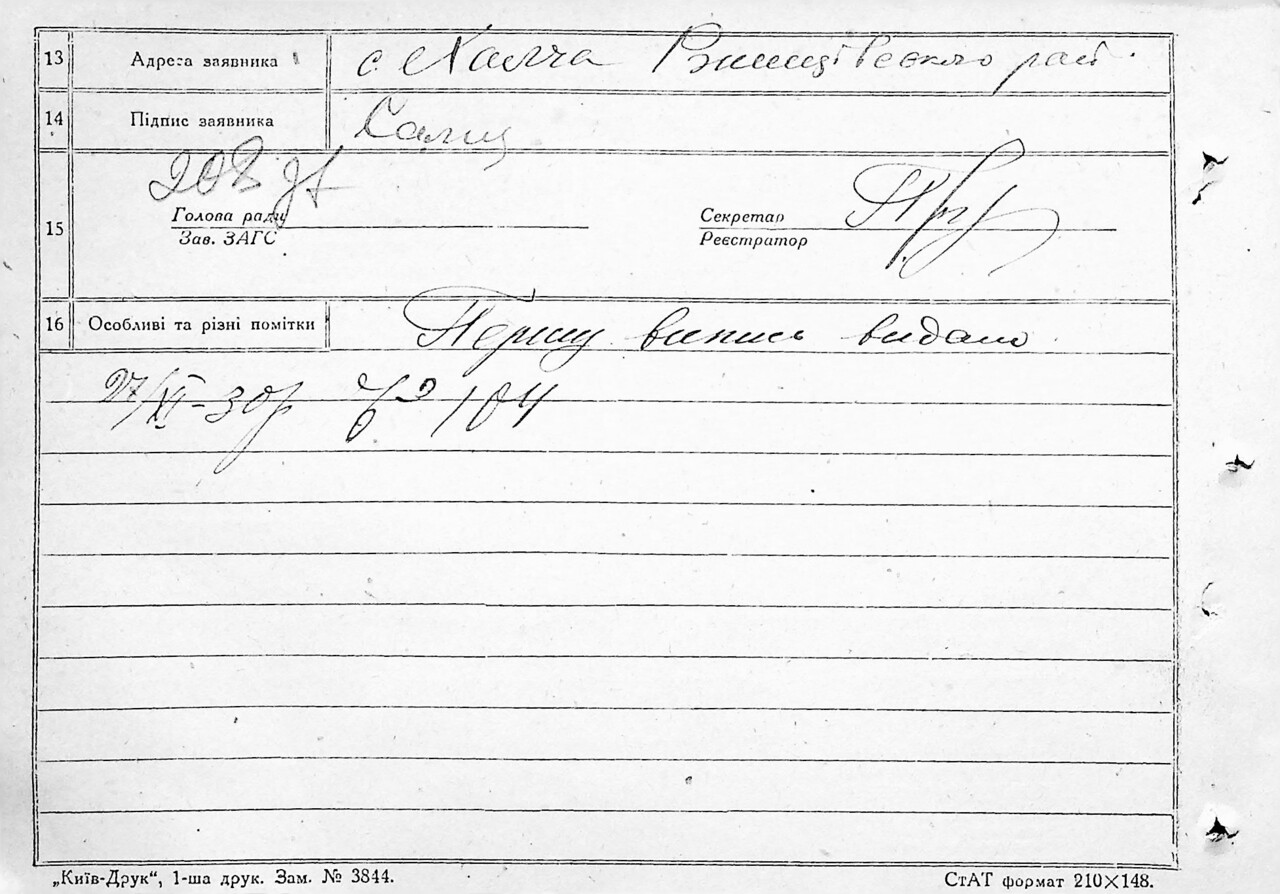 13 Адреса заявника с. Халча Ржищівського рай.
14 Підпис заявника
203
15 Голова ради Секретар
Зав. ЗАГС Реєстратор
16 Особливі та різні помітки Першу випись видано
27/XI-30р № 104
„Київ-Друк“, 1-ша друк. Зам. № 3844. СтАТ формат 210×148.